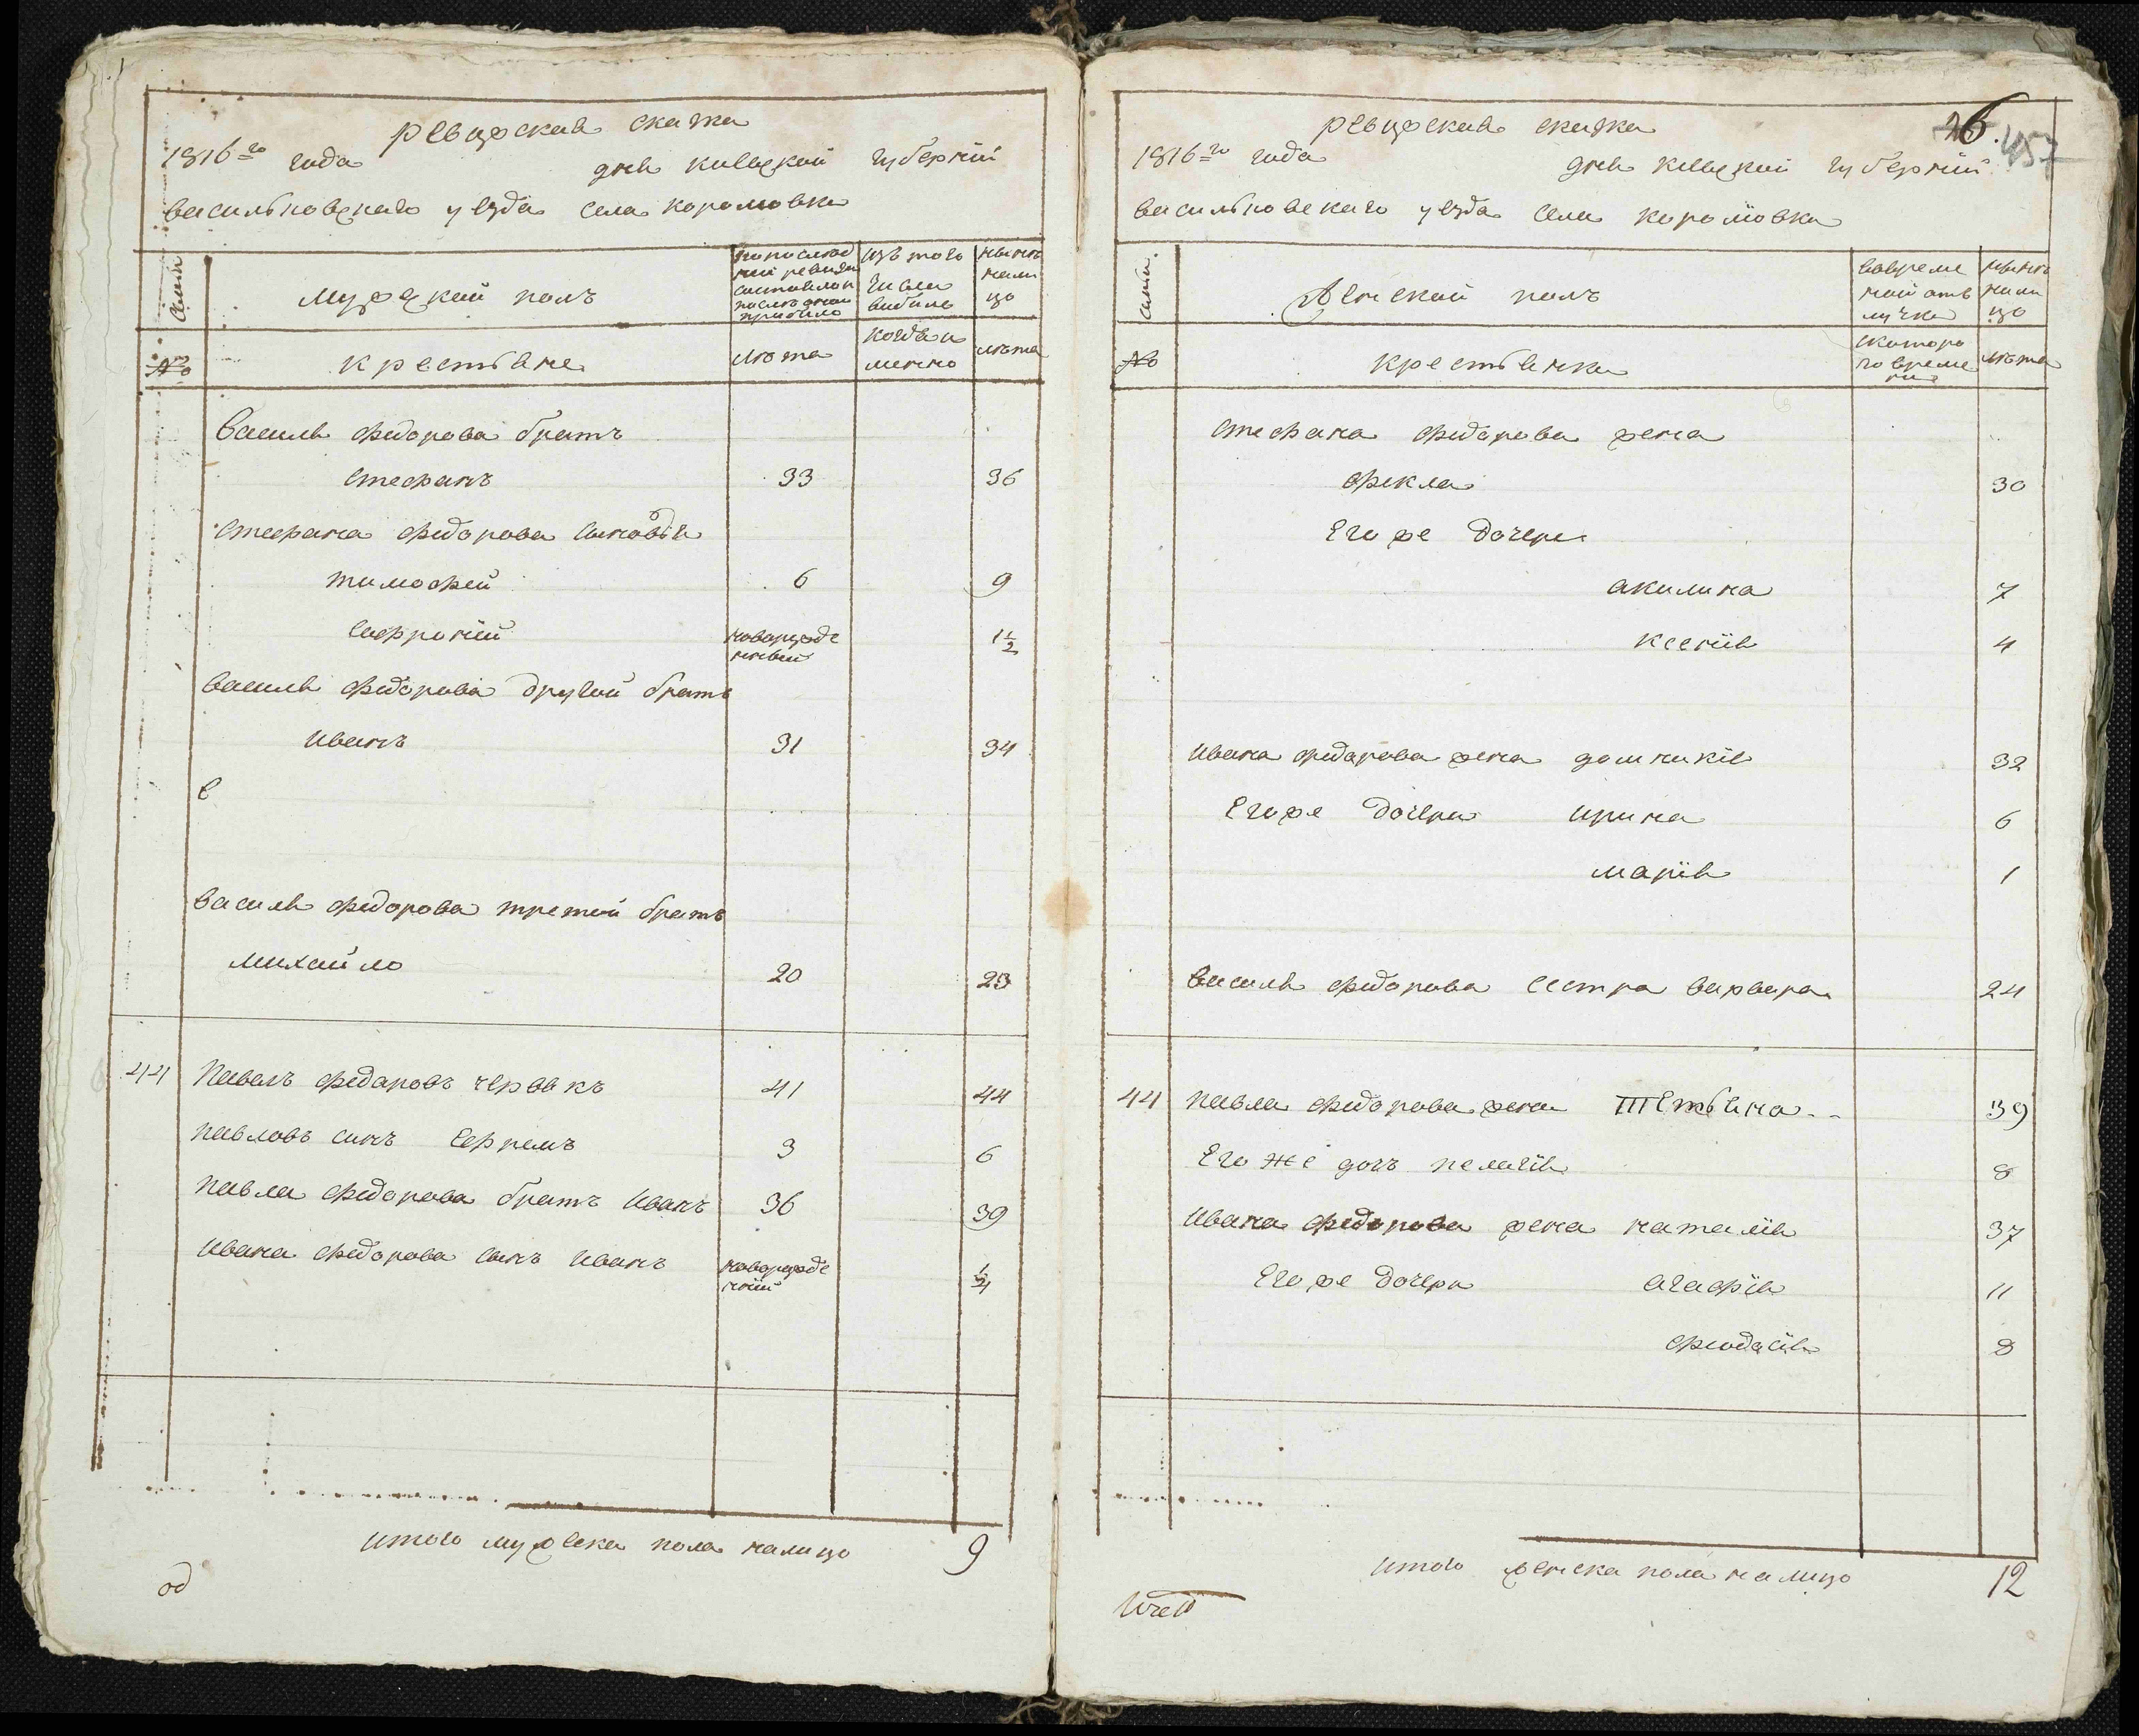 ревизская сказка
1816го года дня киевской губернии
васильковскаго уезда села королювки
семьи
мужский полъ
по последней ревизии состояло и после оной прибило
изъ того числа выбило
нынѣ налицо
№
крестьяне
лѣта
когда именно
лѣта
Василя федорова братъ
стефанъ 33 36
стефана федорова синовья
тимофей 6 9
софроній новорожденный 1 1/2
василя федорова другой братъ
иванъ 31 34
василя федорова третей братъ
михайло 20 23
44 павелъ федоровъ червякъ 41 44
павловъ синъ ефремъ 3 6
павла федорова братъ иванъ 36 39
ивана федорова синъ иванъ новорожденій
итого мужеска пола налицо 9
од
26.
457
ревизская сказка
1816го года дня киевской губерніи
васильковскаго уезда села королювки
семьи.
Женской полъ
во временной отлучке
нынѣ налицо
№
крестьянки
скоторого времени
лѣта
стефана федорова жена
фекла 30
Его же дочери
акилина 7
ксенія 4
ивана федорова жена домникія 32
Его же дочери ирина 6
марія 1
василя федорова сестра варвара 24
44 павла федорова жена Тетьяна 39
Его же дочъ пелагія 8
ивана федорова жена наталія 37
Его же дочери агафія 11
феодосія 8
итого женска пола налицо 12